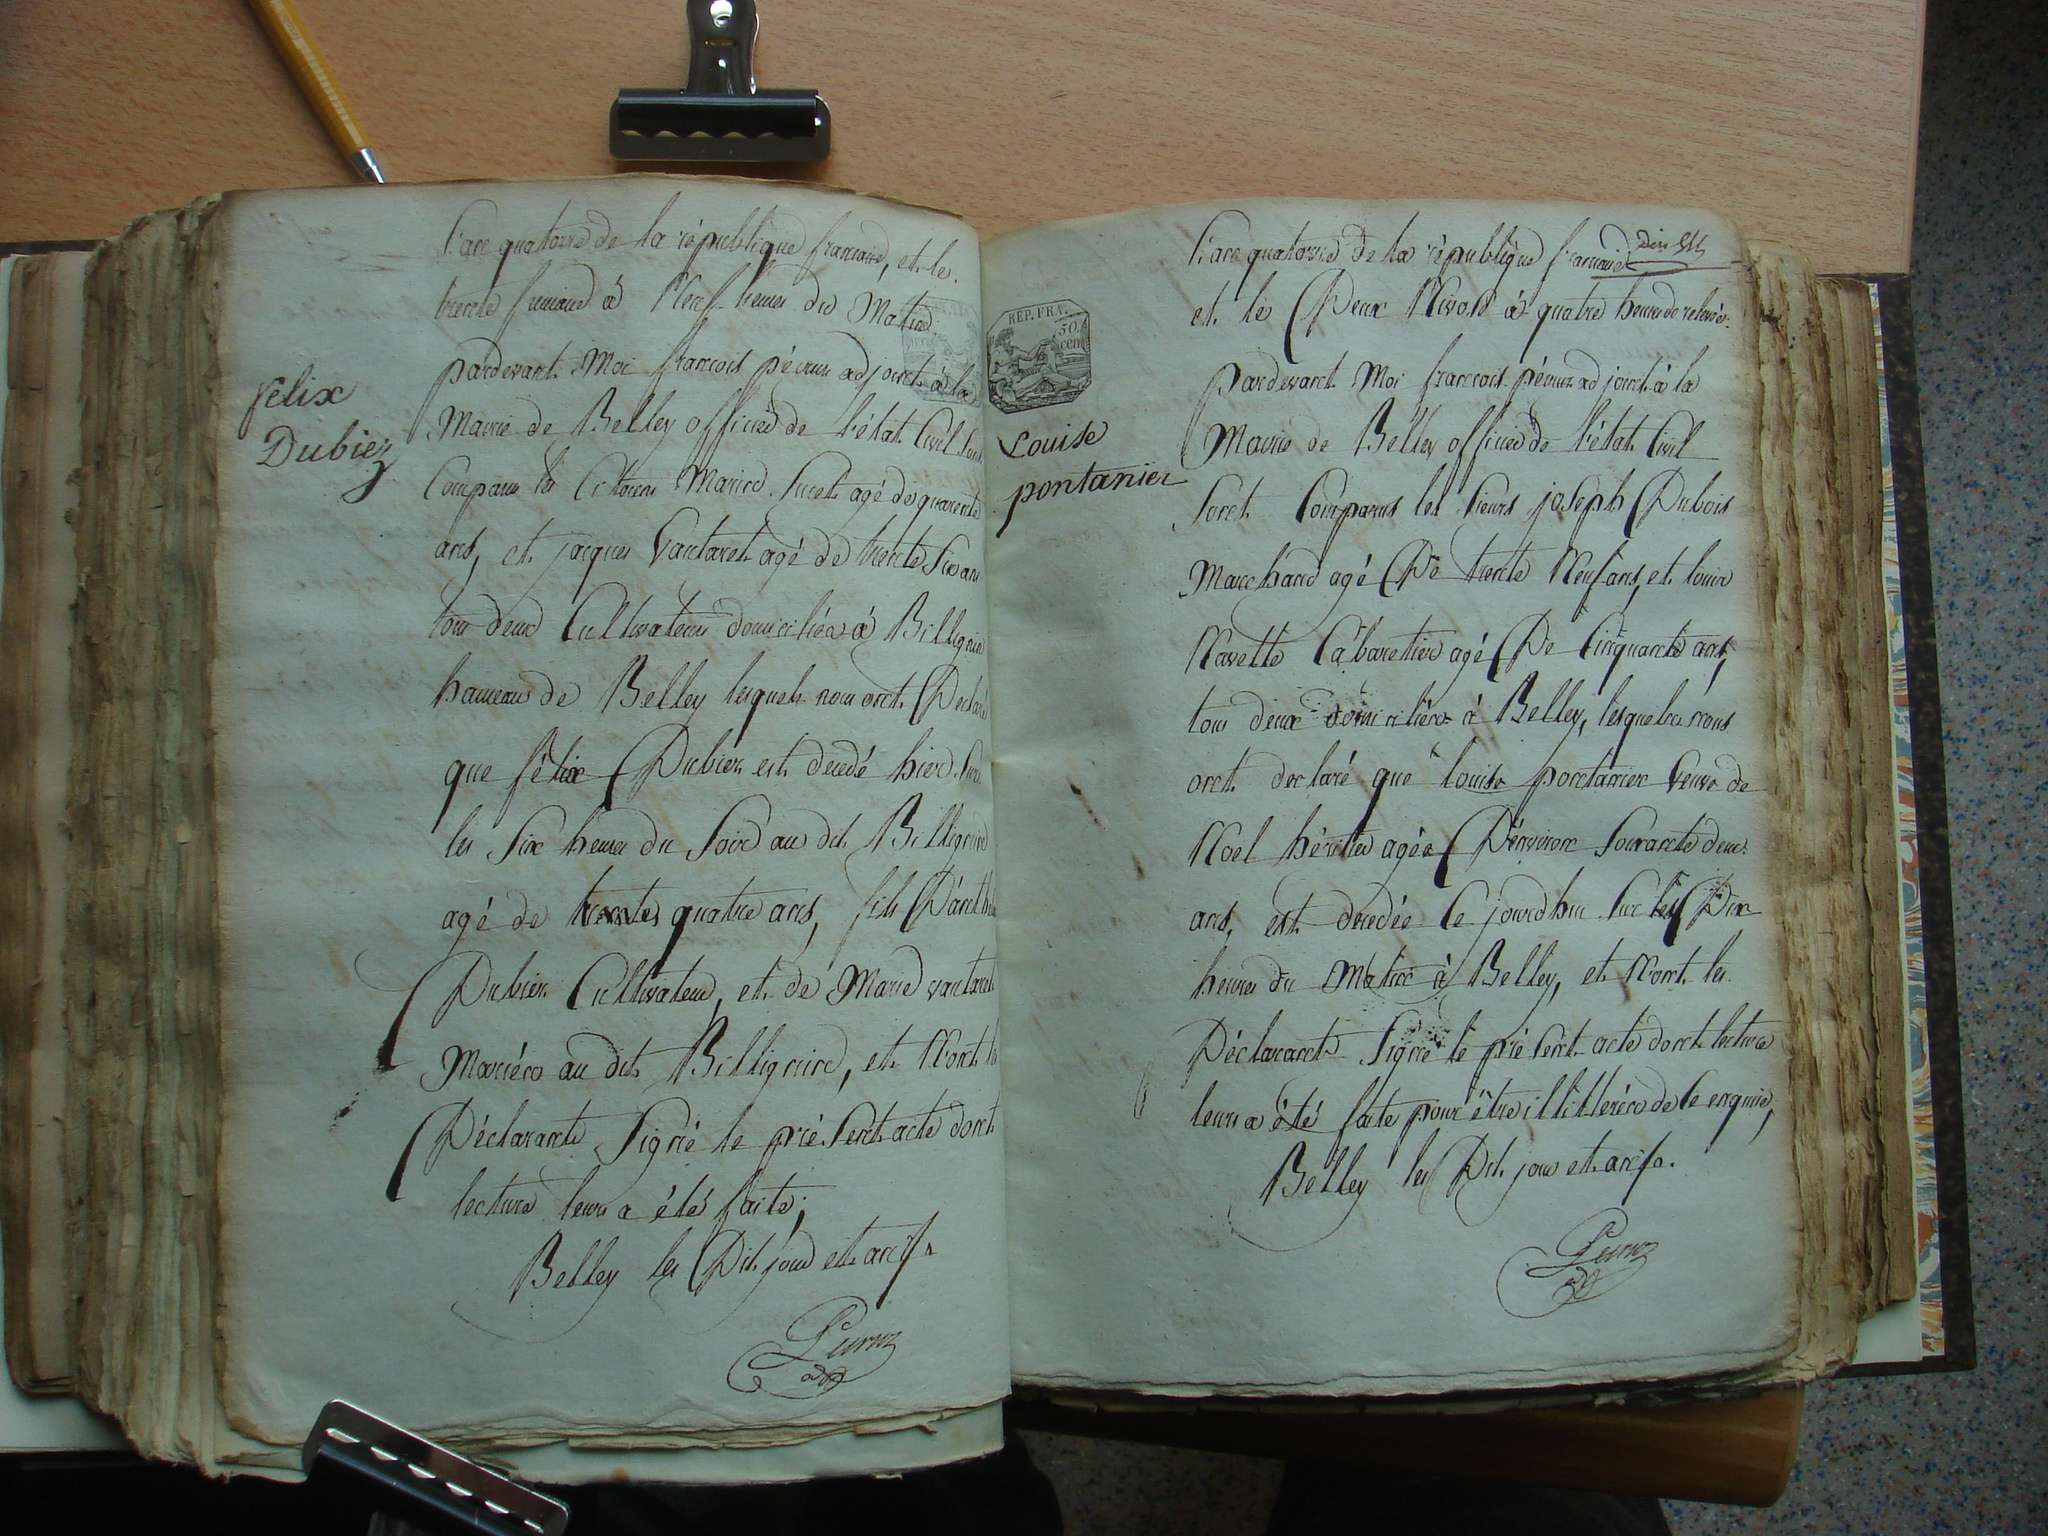 L'an quatorze de la république française, et le
trente frimaire à Neuf heures du Matin
pardevant Moi françois pévraz adjoint à la
Mairie de Belley officier de l'état Civil sont
Comparus les Citoyens Marin Sucet agé de quarente
ans, et jacques Vantaret agé de trente Six ans
tous deux Cultivateurs domiciliés à Billignin
hameau de Belley lesquels nous ont Déclaré
que félix Dubiez est decedé hier Sur
les Six heures du Soir au dit Billignin
agé de trente quatre ans, fils D'anthe
Dubiez Cultivateur, et de Marie vantaret
Mariés au dit Billignin, et N'ont les
Déclarants Signé le présent acte dont
lecture leurs a été faite;
Belley les Dit jour et an
félix
Dubiez
L'an quatorze de la république française
et le Deux Nivose à quatre heures de relevée
REP. FRA.
50
cen
pardevant Moi françois pévraz adjoint à la
Mairie de Belley officier de l'état Civil
Sont Comparus les Sieurs joseph Dubois
Marchand agé De trente Neuf ans, et louis
Navette Cabaretier agé De Cinquante ans,
tous deux domiciliés à Belley, lesquels nous
ont declaré que louise pontannier Veuve de
Noel héritier agée D'environ Soixante deux
ans, est decedée Ce jourd'hui Sur les Dix
heures du Matin à Belley, et N'ont les
Déclarants Signé le présent acte dont lecture
leurs a été faite pour être illitterés de Ce enquis,
Belley les Dit jour et an
Louise
pontanier